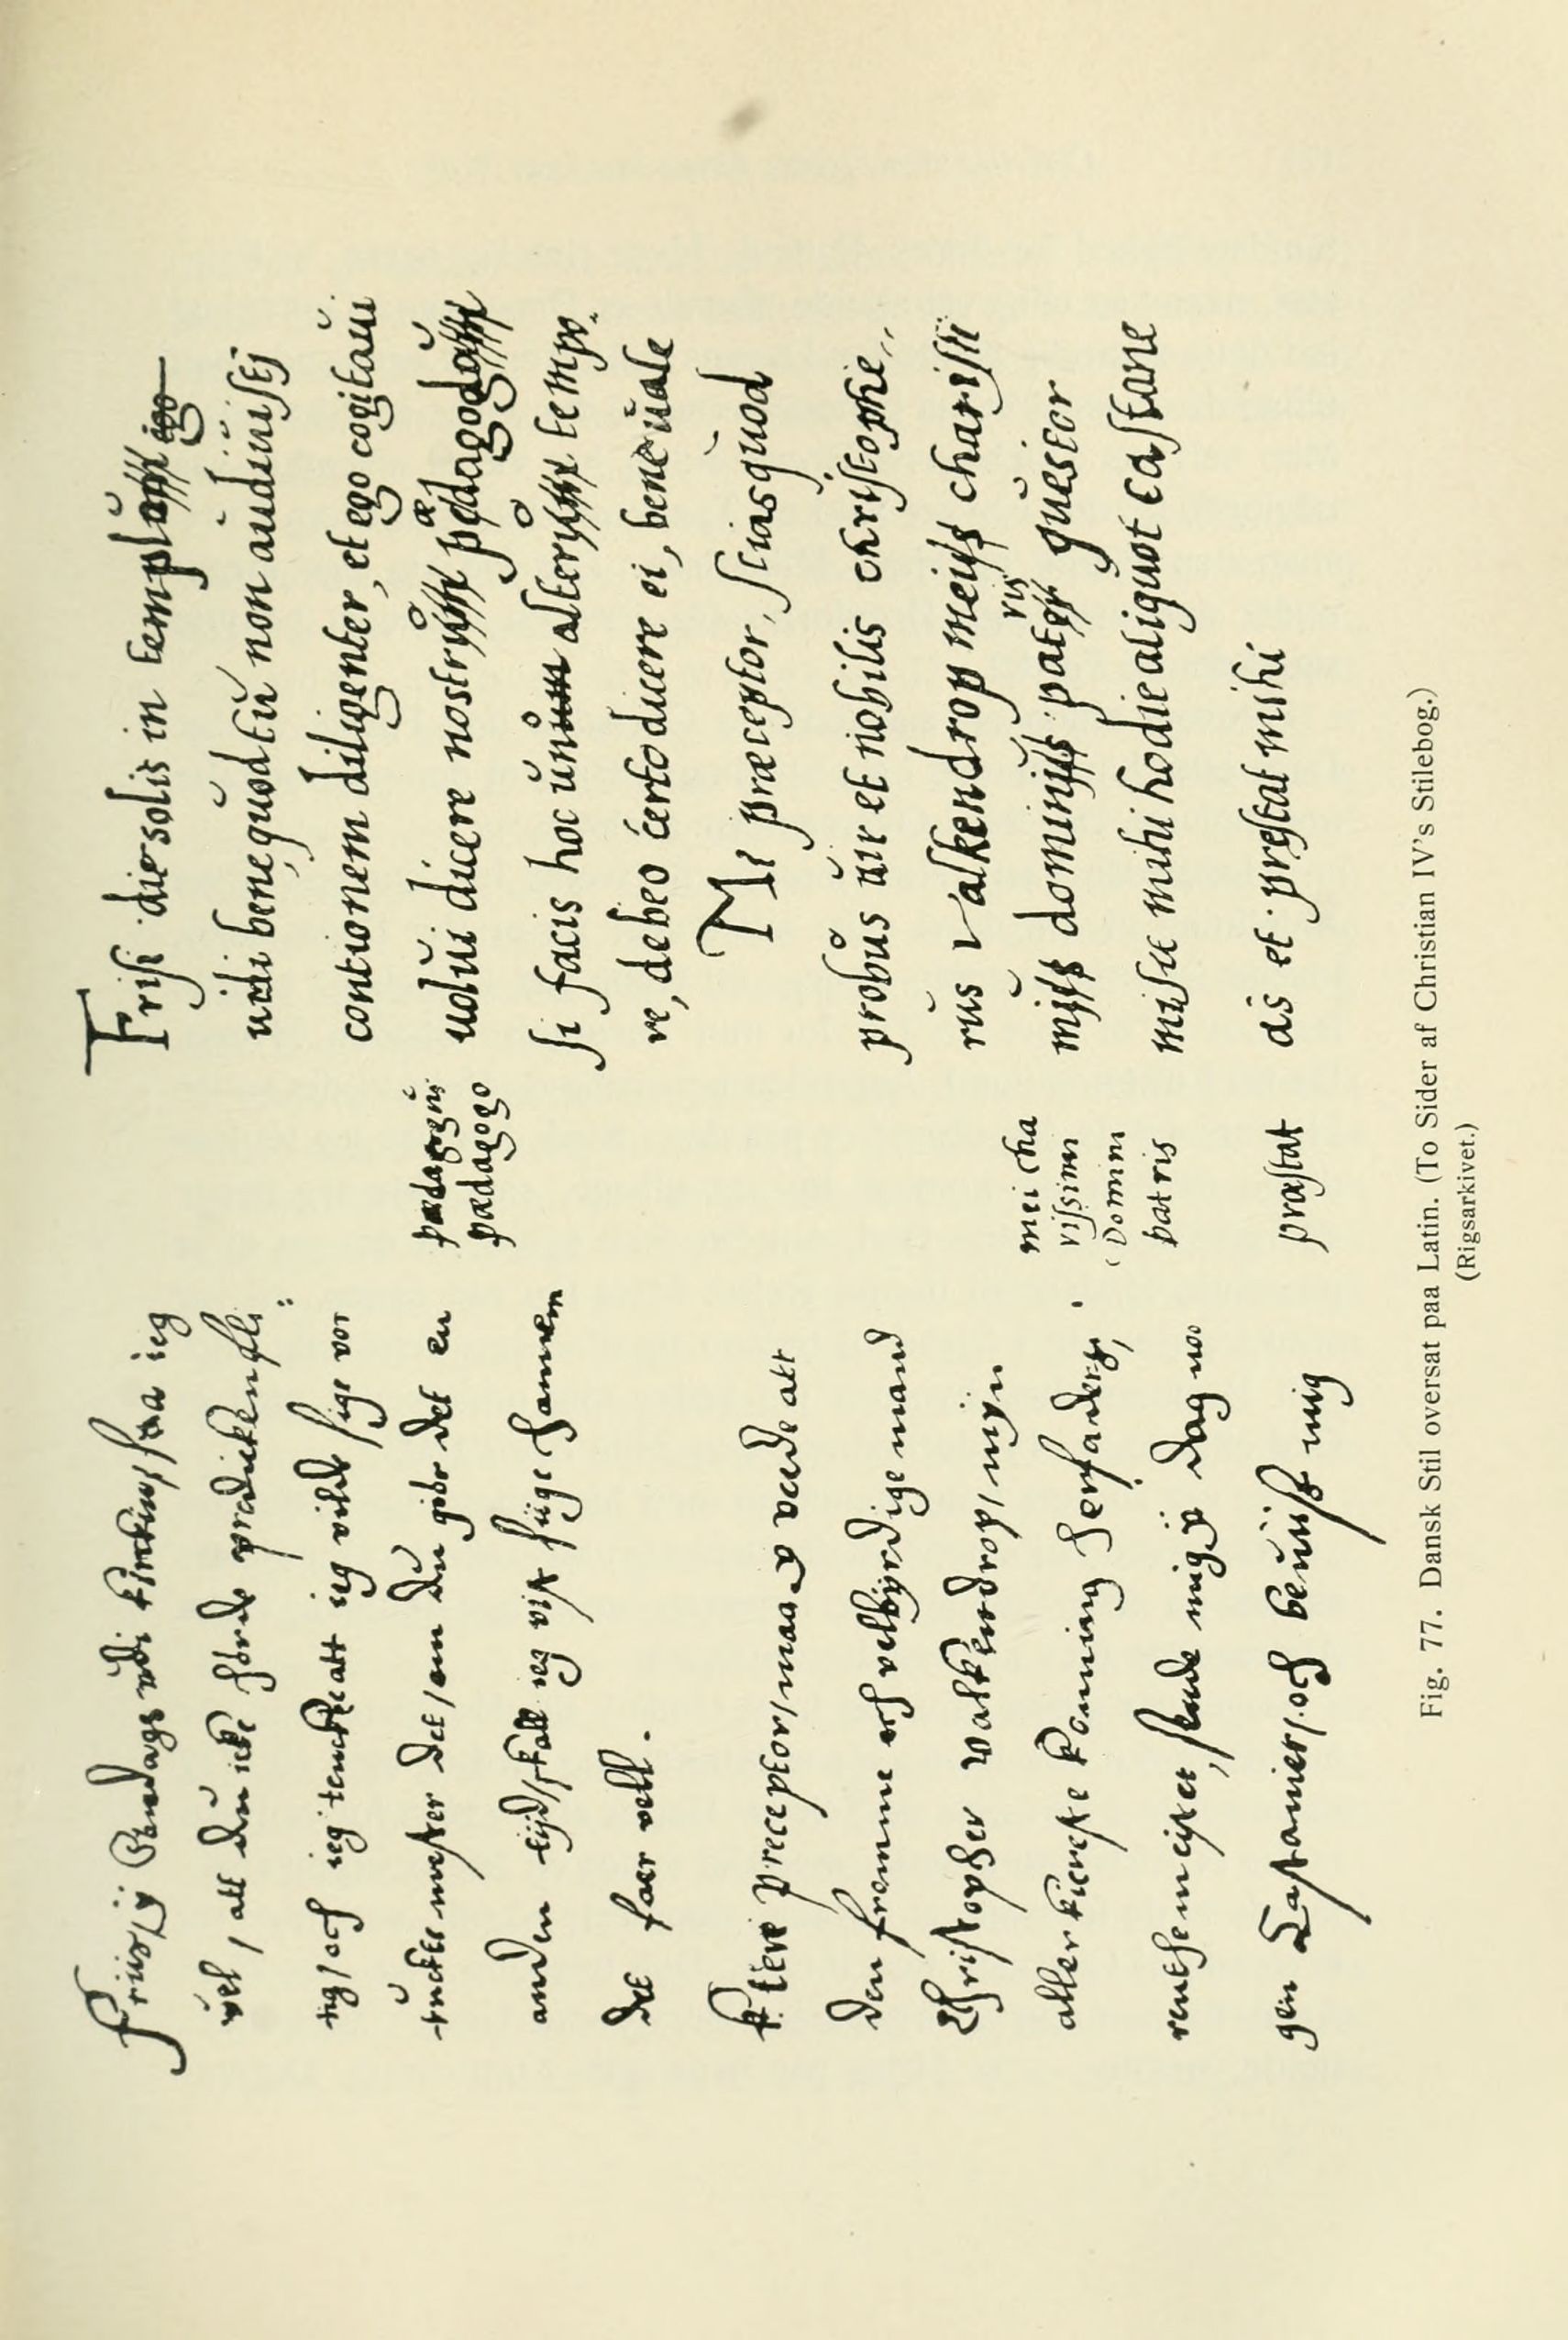 Friis, ij Søndags udi kirckin, saa ieg
vel, att du icke hørde predicken fli⸗
tig, och ieg tenckte att ieg vilde sige vor
tuckte mester det, om du giør det en
anden tijd, skall ieg vist siige hannem
det faer vell.
kiere preceptor, maa v veede att
den fromme och velbyrdige mand
Christopher walkendrop, mijn
aller kiereste konning herfaders,
renthemeister, sende mig ij dag noo
gen Castanier, och beuiist mig
Frisi die solis in templo ego
uidi bene, quod tu non audiuistj
contionem diligenter, et ego cogitaui
uolui dicere nostro pædagogo
si facis hoc uno altero tempo.
re, debeo certo dicere ei, bene uale
Mi præceptor, scias quod
probus uir et nobilis christophe„
rus valkendrop meis charissi
miss dominiss patris questor
misit mihi hodie aliquot castane
as et prestat mihi
pædagogus
pædagogo
mei cha
rissimi
Domini
patris
præstat
Fig. 77. Dansk Stil oversat paa Latin. (To Sider af Christian IV's Stilebog.)
(Rigsarkivet.)